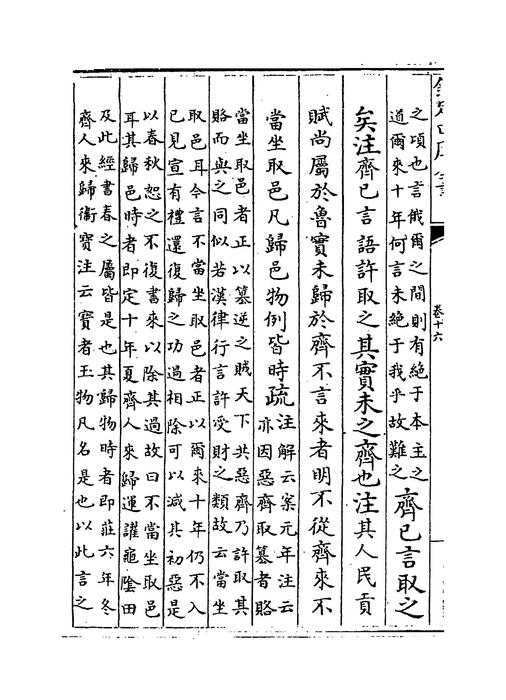 欽定四庫全書
卷十六
之頃也言俄爾之間則有絕于本主之
道爾來十年何言未絕于我乎故難之
齊已言取之
矣注齊已言語許取之其實未之齊也注其人民貢
賦尚屬於魯實未歸於齊不言來者明不從齊來不
當坐取邑凡歸邑物例皆時疏
注解云案元年注云
亦因惡齊取篡者賂
當坐取邑者正以篡逆之賊天下共惡齊乃許取其
賂而與之同似若漢律行言許受財之類故云當坐
取邑耳今言不當坐取邑者正以爾來十年仍不入
已見宣有禮還復歸之功過相除可以減其初惡是
以春秋恕之不復書來以除其過故曰不當坐取邑
耳其歸邑時者即定十年夏齊人來歸運讙龜陰田
及此經書春之屬皆是也其歸物時者即莊六年冬
齊人來歸衞寶注云寶者玉物凡名是也以此言之